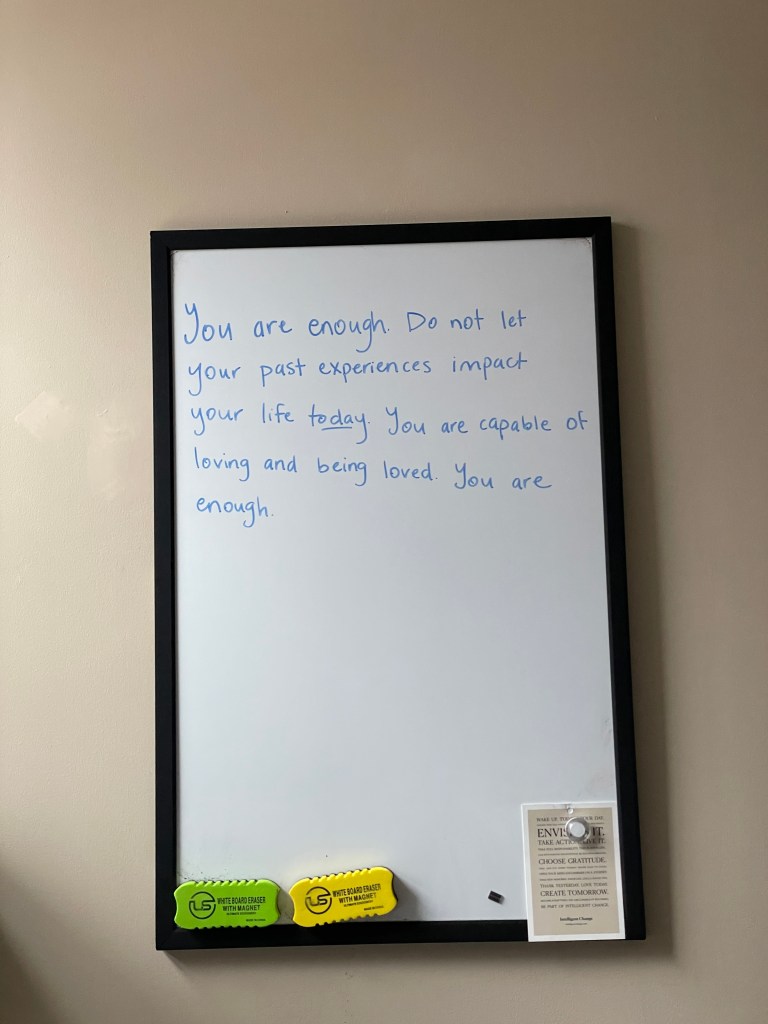 You are enough. Do not let
your past experiences impact
your life today. You are capable of
loving and being loved. You are
enough.
US
WHITE BOARD ERASER
WITH MAGNET
US
WHITE BOARD ERASER
WITH MAGNET
WAKE UP YOUR DAY.
IT.
TAKE IT.
CHOOSE GRATITUDE.
THANK YESTERDAY. LOVE TODAY.
CREATE TOMORROW.
BE PART OF INTELLIGENT CHANGE.
Intelligent Change